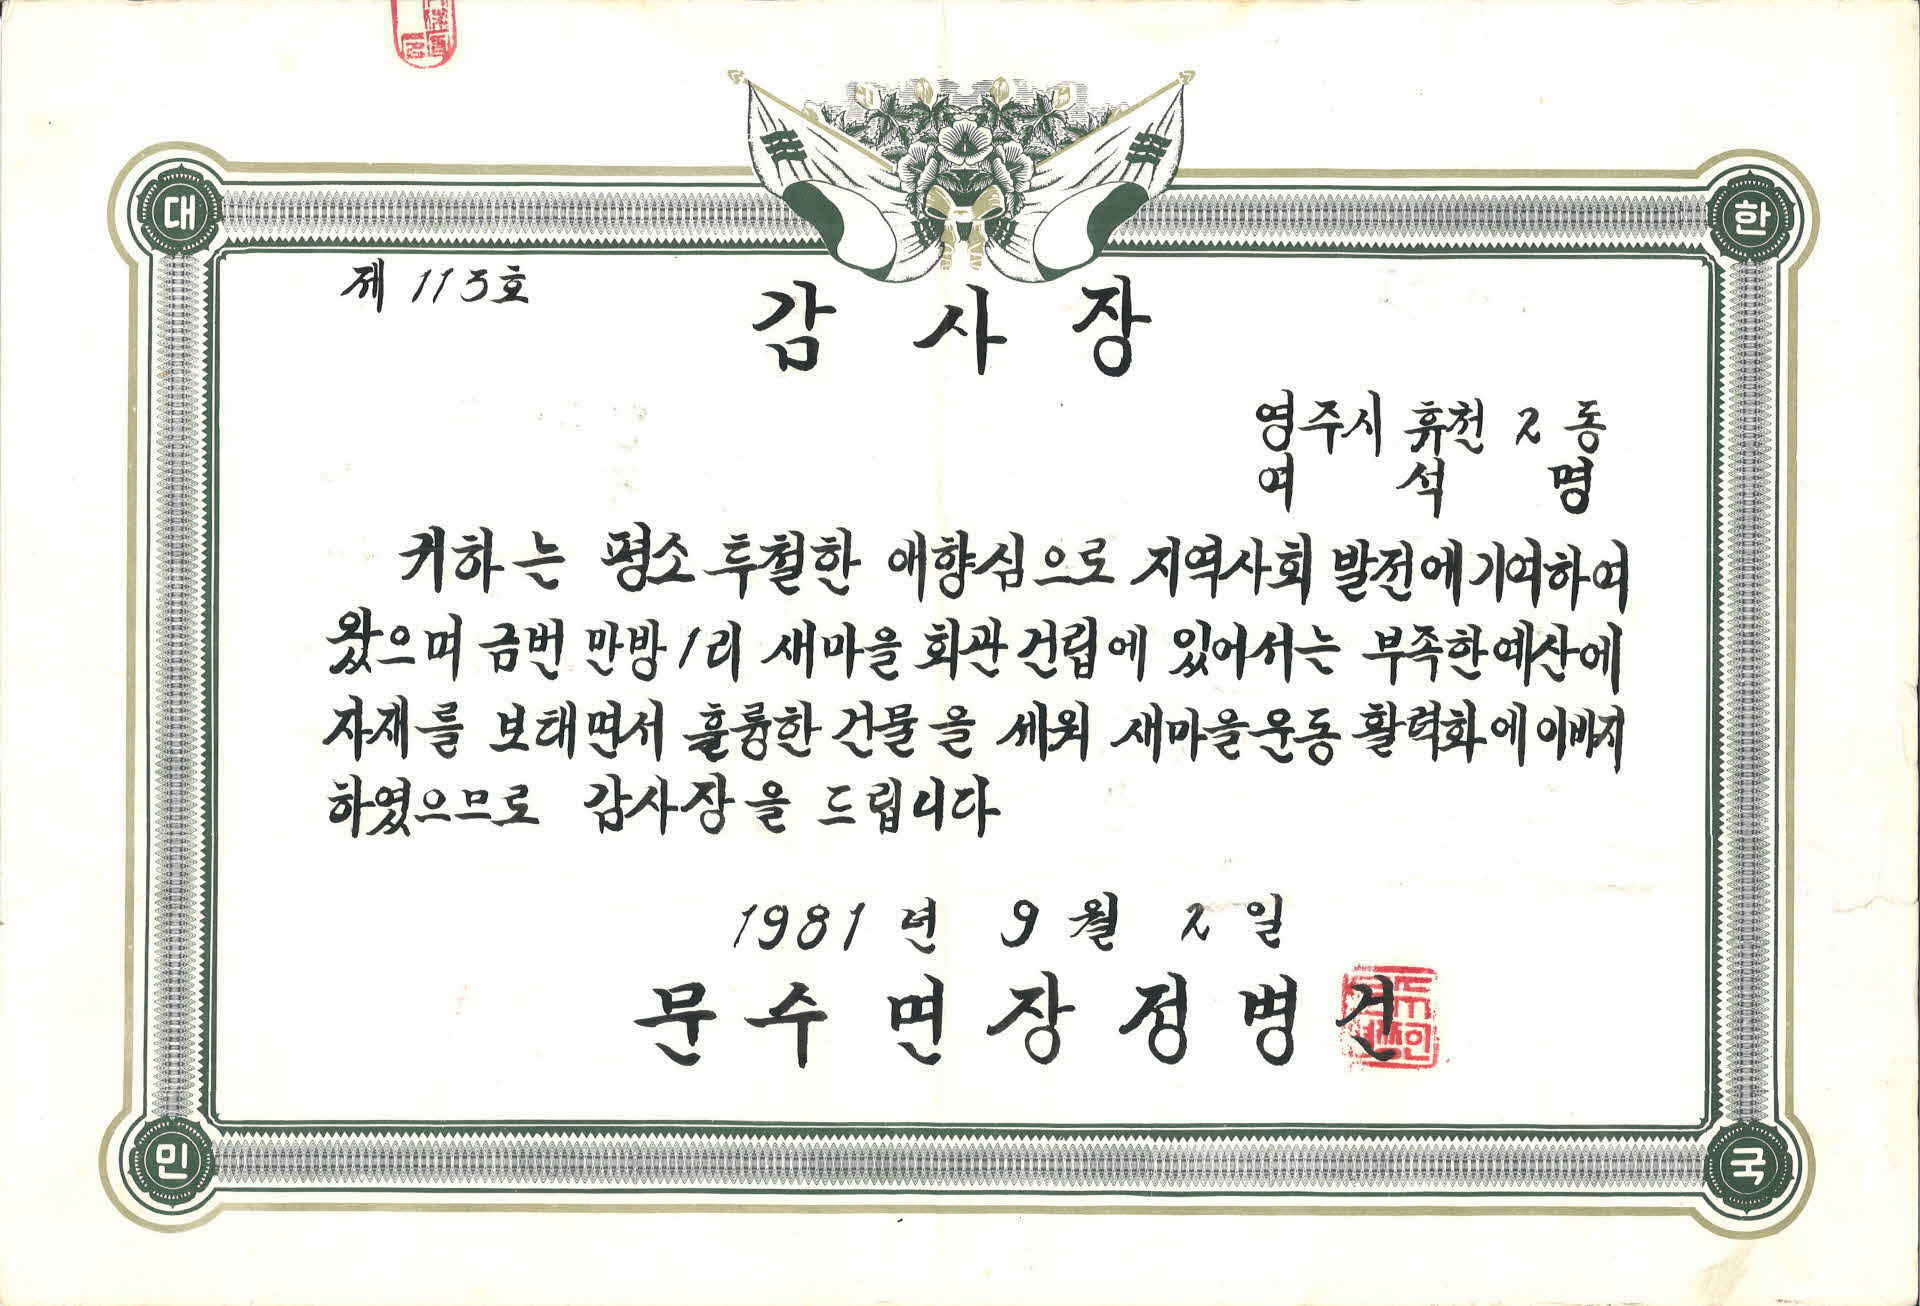 대 한
제 115호
감 사 장
영주시 휴천 2 동
여 석 명
귀하는 평소 투철한 애향심으로 지역사회 발전에 기여하여
왔으며 금번 만방 1리 새마을 회관 건립에 있어서는 부족한 예산에
자재를 보태면서 훌륭한 건물을 세워 새마을운동 활력화에 이바지
하였으므로 감사장을 드립니다
1981 년 9 월 2 일
문 수 면 장 정 병 건
민 국